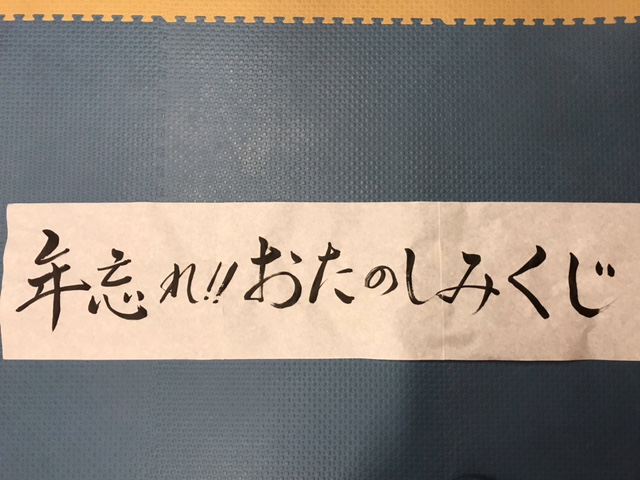 年忘れ!!おたのしみくじ